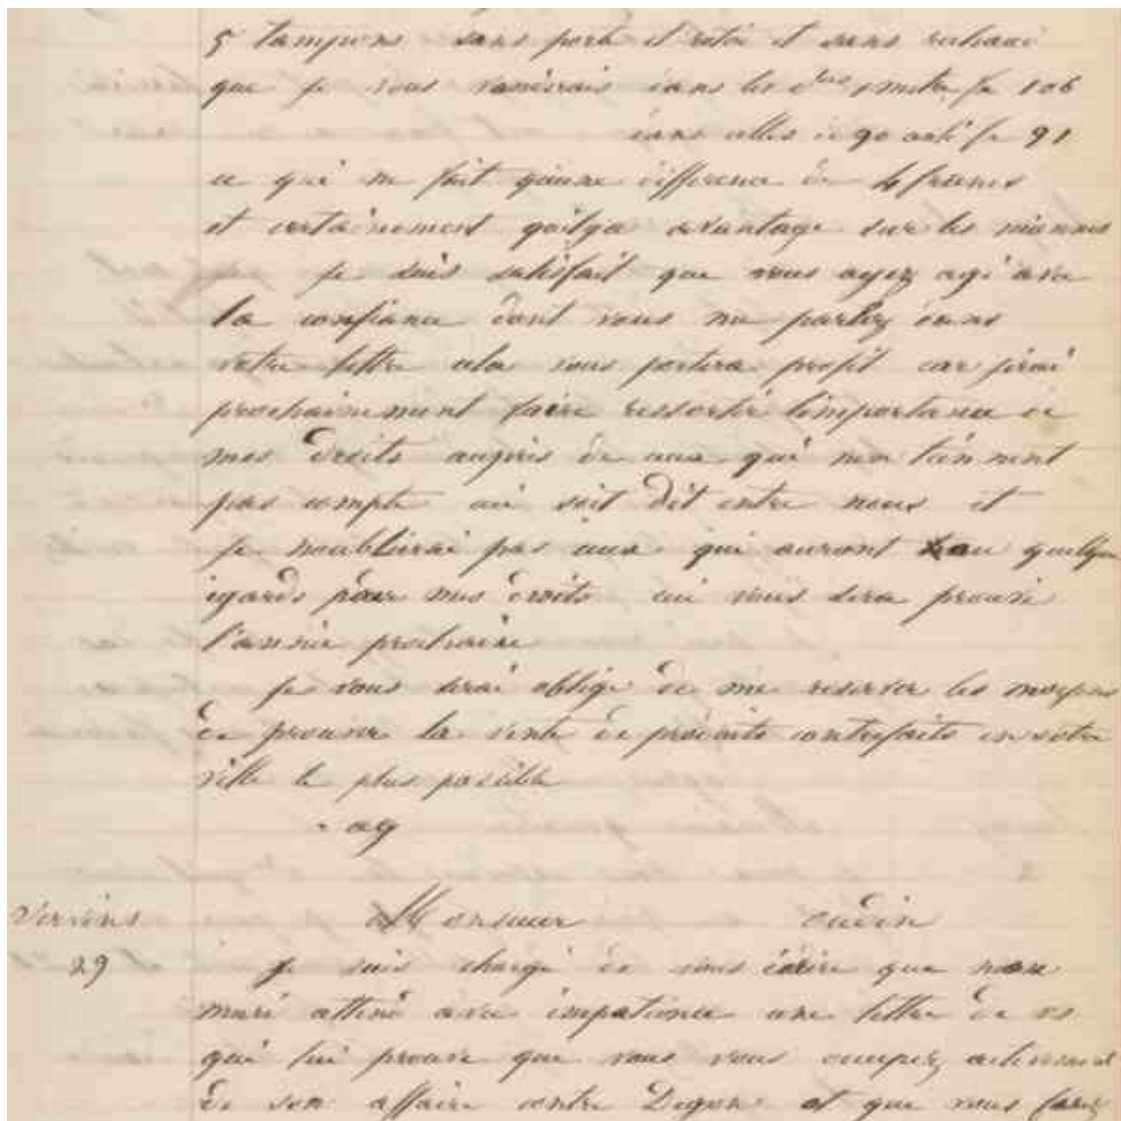 5 tampons sans porte et rotée et sans
que je vous vendrais dans les 1 metre fr 106
dans celles de 90 cent fr 91
ce qui ne fait qu'une difference de 4 francs
et certainement quilya avantage sur les miennes
je suis satisfait que vous ayez agi avec
la confiance dont vous me parlez dans
votre lettre cela vous portera profit car jirai
prochainement faire ressortir limportance de
mes droits aupres de ceux qui nen tiennent
pas compte ceci soit dit entre nous et
je noublierai pas ceux qui auront eu quelques
egards pour mes droits ceci vous sera prouvé
l'année prochaine
je vous serai obligé de me reserver les moyens
de prouver la vente de produits contrefaits en votre
ville le plus possible
ag
Vervins Monsieur oudin
29 je suis chargé de vous écrire que mon
mari attend avec impatience une lettre de vs
qui lui prouve que vous vous occupez activement
de son affaire contre Degon et que vous